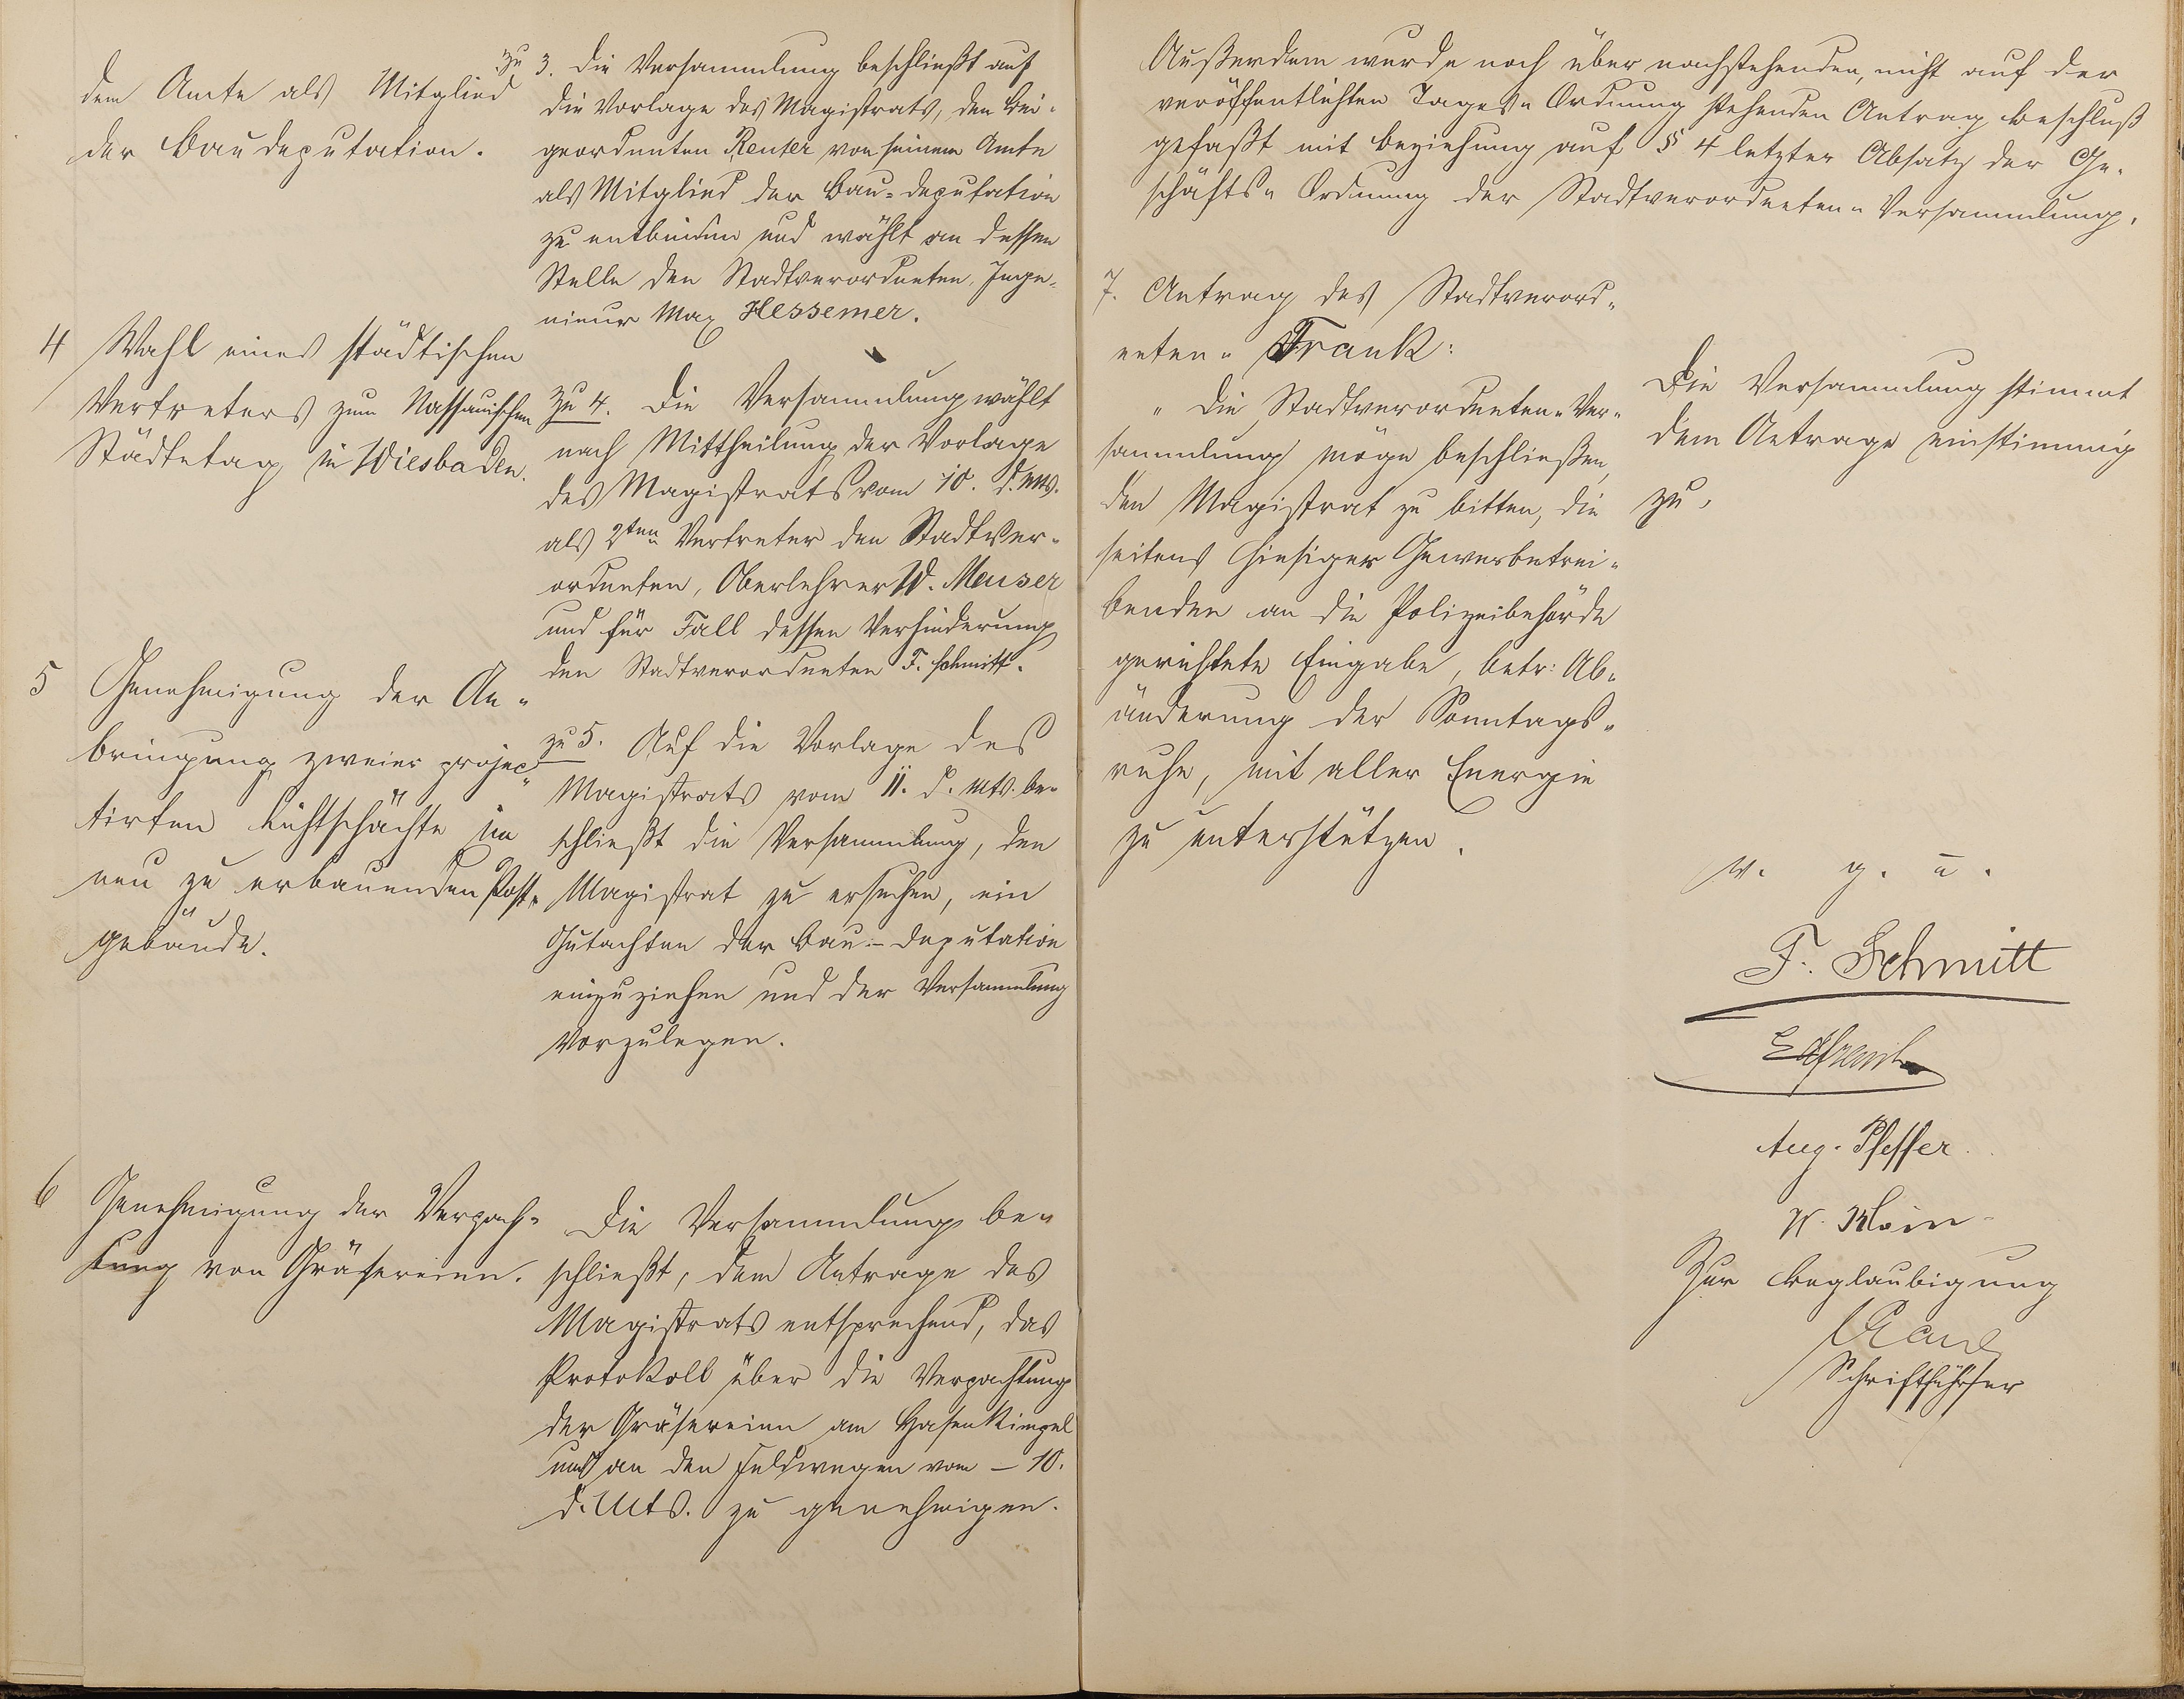 dem Amte als Mitglied
der Baudeputation.
zu 3. Die Versammlung beschließt auf
die Vorlage des Magistrats, den Bei-
geordneten Reuter von seinem Amte
als Mitglied der Bau-Deputation
zu entbinden und wählt an dessen
Stelle den Stadtverordneten, Inge-
nieur Max Hessemer.
4 Wahl eines städtischen
Vertreters zum Nassauischen
Städtetag in Wiesbaden.
zu 4. Die Versammlung wählt
nach Mittheilung der Vorlage
des Magistrats vom 10. d. Mts.
als 2ten Vertreter den Stadtver-
ordneten, Oberlehrer W. Meuser
und für Fall dessen Verhinderung
den Stadtverordneten F. Schmitt.
5 Genehmigung der An-
bringung zweier projec-
tirten Lichtschächte im
neu zu erbauenden Post-
gebäude.
zu 5. Auf die Vorlage des
Magistrats vom 11. d. Mts. be-
schließt die Versammlung, den
Magistrat zu ersuchen, ein
Gutachten der Bau-Deputation
einzuziehen und der Versammlung
vorzulegen.
6 Genehmigung der Verpach-
tung von Gräsereien.
Die Versammlung be-
schließt, dem Antrage des
Magistrats entsprechend, das
Protokoll über die Verpachtung
der Gräsereien am Hasenkimpel
und an den Feldwegen vom – 10.
d. Mts. zu genehmigen.
Außerdem wurde noch über nachstehenden, nicht auf der
veröffentlichten Tages-Ordnung stehenden Antrag Beschluß
gefaßt mit Beziehung auf § 4 letzter Absatz der Ge-
schäfts-Ordnung der Stadtverordneten-Versammlung.
7. Antrag des Stadtverord-
neten- Frank:
"Die Stadtverordneten-Ver-
sammlung möge beschließen,
den Magistrat zu bitten, die
seitens hiesiger Gewerbetrei-
benden an die Polizeibehörde
gerichtete Eingabe, betr: Ab-
änderung der Sonntags-
ruhe, mit aller Energie
zu unterstützen.
Die Versammlung stimmt
dem Antrage einstimmig
zu.
v. g. u.
F. Schmitt
Aug. Pfeffer.
Zur Beglaubigung
Schriftführer